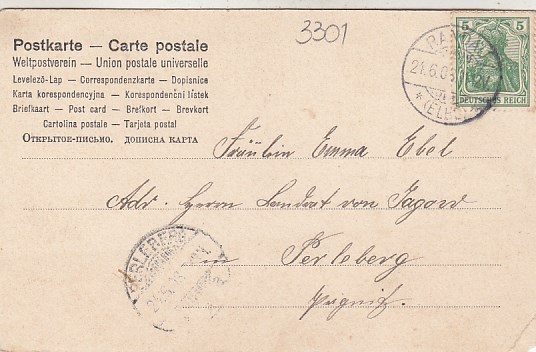 3301
Postkarte — Carte postale
Weltpostverein — Union postale universelle
Levelező-Lap — Correspondenzkarte — Dopisnice
Karta korespondencyjna — Korespondenční lístek
Briefkaart — Post card — Brefkort — Brevkort
Cartolina postale — Tarjeta postal
Открытое-письмо. дописна карта
5 5
DEUTSCHES REICH
21.6.03
(ELBE)
Fräulein Emma Ebel
Adr. Herrn Landrat von Jagow
Perleberg
Prignitz.
PERLEBERG